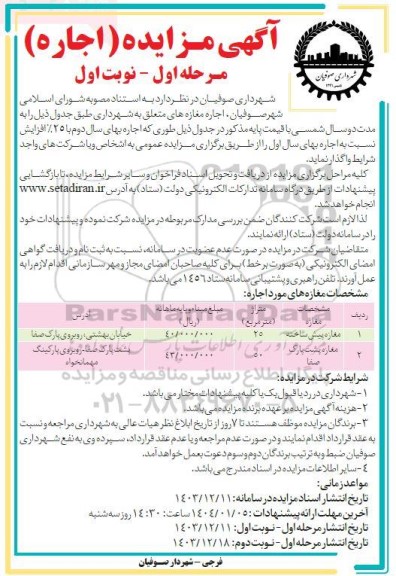 آگهی مـزایده (اجاره)
مـرحله اول - نوبت اول
شهرداری صوفیان
شهـرداری صوفیـان در نظـردارد بـه اسـتناد مصوبه شورای اسـلامی
شهر صـوفیـان ، اجاره مغازه های متعلق به شهرداری طبق جدول ذیل را به
مدت دو سـال شمسـی با قیمت پایه مذکور در جدول ذیل طوری که اجاره بهای سال دوم با ۲۵٪ افزایش
نسبت به اجاره بهای سال اول را از طـریق برگزاری مزایده عمومی به اشخاص ویا شرکت های واجد
شرایط واگذار نماید.
کلیه مراحل برگزاری مزایده از دریافت و تحویل اسناد فراخوان و سایر شرایط مزایده، تا بازگشایی
پیشنهادات از طریق درگاه سامانه تدارکات الکترونیکی دولت (ستاد) به آدرس www.setadiran.ir
انجام خواهد شد.
لذا لازم است شرکت کنندگان ضمن بررسی مدارک مربوطه در مزایده شرکت نموده و پیشنهادات خود
را در سامانه دولت (ستاد) ارائه نمایند.
متقاضیان شـرکت در مزایده در صورت عدم عضویت در سـامانه، نسبت به ثبت نام و دریافت گواهی
امضای الکترونیکی (به صورت برخط) بـرای کلیه صاحبان امضای مجاز و مهر سـازمانی اقدام لازم را به
عمل آورند. تلفن راهبری و پشتیبانی سامانه ستاد ۱۴۵۶ می باشد.
مشخصات مغازه های مورد اجاره:
ردیف مشخصات مغازه متراژ (متر مربع) مبلغ اجاره پایه ماهانه (ریال) آدرس
۱ مغازه پیش ساخته ۲۵ ۴۰/۰۰۰/۰۰۰ خیابان بهشتی، روبروی پارک صفا
۲ مغازه پشت پارک صفا ۵۰ ۴۳/۰۰۰/۰۰۰ پشت پارک صفا- روبروی پارکینگ مهمانخواه
شرایط شرکت در مزایده:
۱- شهرداری در رد یا قبول یک یا کلیه پیشنهادات مختار می باشد.
۲- هزینه آگهی مزایده بر عهده برنده مزایده می باشد.
۳- برندگان مزایده موظف هستند تا ۷ روز از تاریخ ابلاغ نظر هیات عالی به شهرداری مراجعه و نسبت
به عقد قرارداد اقدام نمایند و در صورت عدم مراجعه و یا عدم عقد قرارداد، سپرده وی به نفع شـهرداری
صوفیان ضبط و به ترتیب برندگان دوم و سوم دعوت بعمل خواهد آمد.
۴- سایر اطلاعات مزایده در اسناد مندرج می باشد.
مواعد زمانی:
تاریخ انتشار اسناد مزایده در سامانه: ۱۴۰۳/۱۲/۱۱
آخرین مهلت ارائه پیشنهادات : ۱۴۰۴/۰۱/۰۵ ساعت: ۱۴:۳۰ روز سه شنبه
تاریخ انتشار مرحله اول - نوبت اول: ۱۴۰۳/۱۲/۱۱
تاریخ انتشار مرحله اول - نوبت دوم: ۱۴۰۳/۱۲/۱۸
فرجی - شهردار صـوفیان
ParsNamadData
پایگاه اطلاع رسانی مناقصه و مزایده
۰۲۱-۸۸۳۴۹۶۷۰